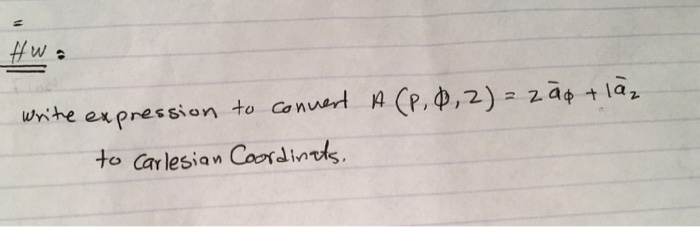 =
HW :
write expression to convert A (ρ, Φ, z) = 2 āΦ + 1āz
to Carlesian Coordinets.